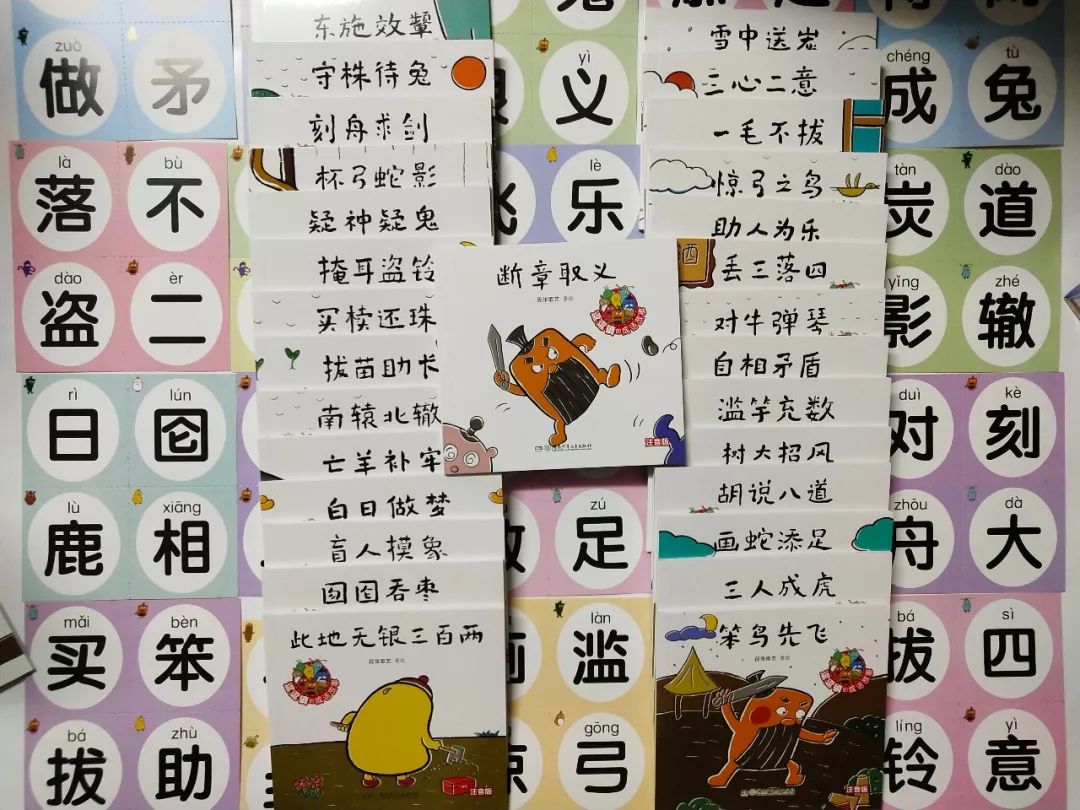 zuò
做 矛
là bù
落 不
dào èr
盗 二
rì lún
日 囵
lù xiāng
鹿 相
mǎi bèn
买 笨
bá zhù
拔 助
东施效颦
守株待兔
刻舟求剑
杯弓蛇影
疑神疑鬼
掩耳盗铃
买椟还珠
拔苗助长
南辕北辙
亡羊补牢
白日做梦
盲人摸象
囫囵吞枣
此地无银三百两
段张取艺 著绘
注音版
yì
义
lè
乐
断章取义
段张取艺 著绘
注音版
zú
足
làn
滥
gōng
弓
雪中送炭
三心二意
一毛不拔
惊弓之鸟
助人为乐
丢三落四
酒
对牛弹琴
自相矛盾
滥竽充数
树大招风
胡说八道
画蛇添足
三人成虎
笨鸟先飞
段张取艺 著绘
注音版
chéng tù
成 兔
tàn dào
炭 道
yǐng zhé
影 辙
duì kè
对 刻
zhōu dà
舟 大
bá sì
拔 四
líng yì
铃 意